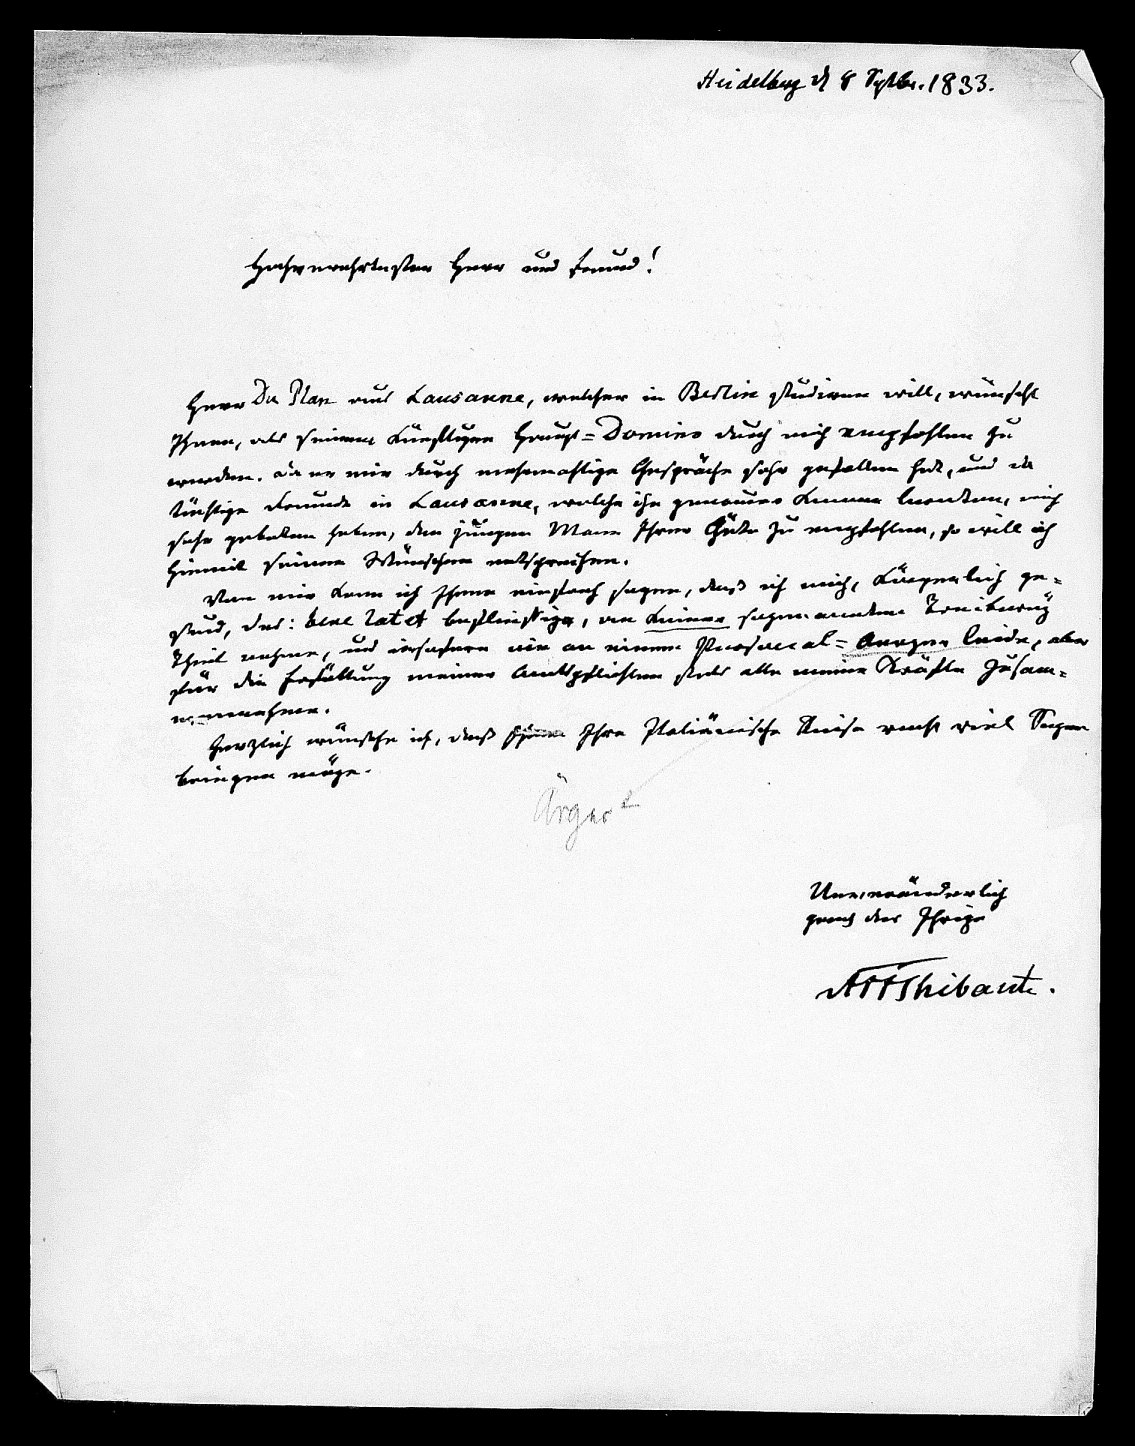 Heidelberg d 8 Septbr. 1833.
Hochverehrtester Herr und Freund!
Herr Du Plan aus Lausanne, welcher in Berlin studiren will, wünscht
Ihnen, als seinem künftigen Haupt=Domino durch mich empfohlen zu
werden. Da er mir durch mehrmahlige Gespräche sehr gefallen hat, und da
tüchtige Freunde in Lausanne, welche ihn genauer kennen konnten, mich
sehr gebeten haben, den jungen Mann Ihrer Güte zu empfehlen, so will ich
hiemit seinen Wünschen entsprechen.
Von mir kann ich Ihnen einfach sagen, daß ich mich, körperlich ge=
sund, des: bene latet befleissige, an keinem sogenannten
Theil nehme, und insofern nie an einem leide, aber
für die Erfüllung meiner Amtspflichten stets alle meine Kräfte zusam=
mennehme.
Herzlich wünsche ich, daß Ihre Italiänische Reise recht viel Segen
bringen möge.
Ärger
Unveränderlich
ganz der Ihrige
AFJThibaut.